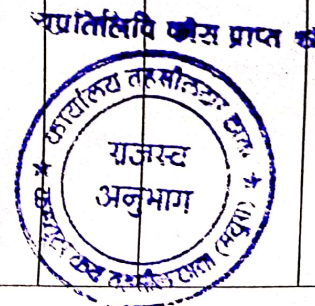 प्रतिलिपि फीस प्राप्त
कार्यालय तहसीलदार छाता
राजस्व
अनुभाग
तहसील छाता (मथुरा)